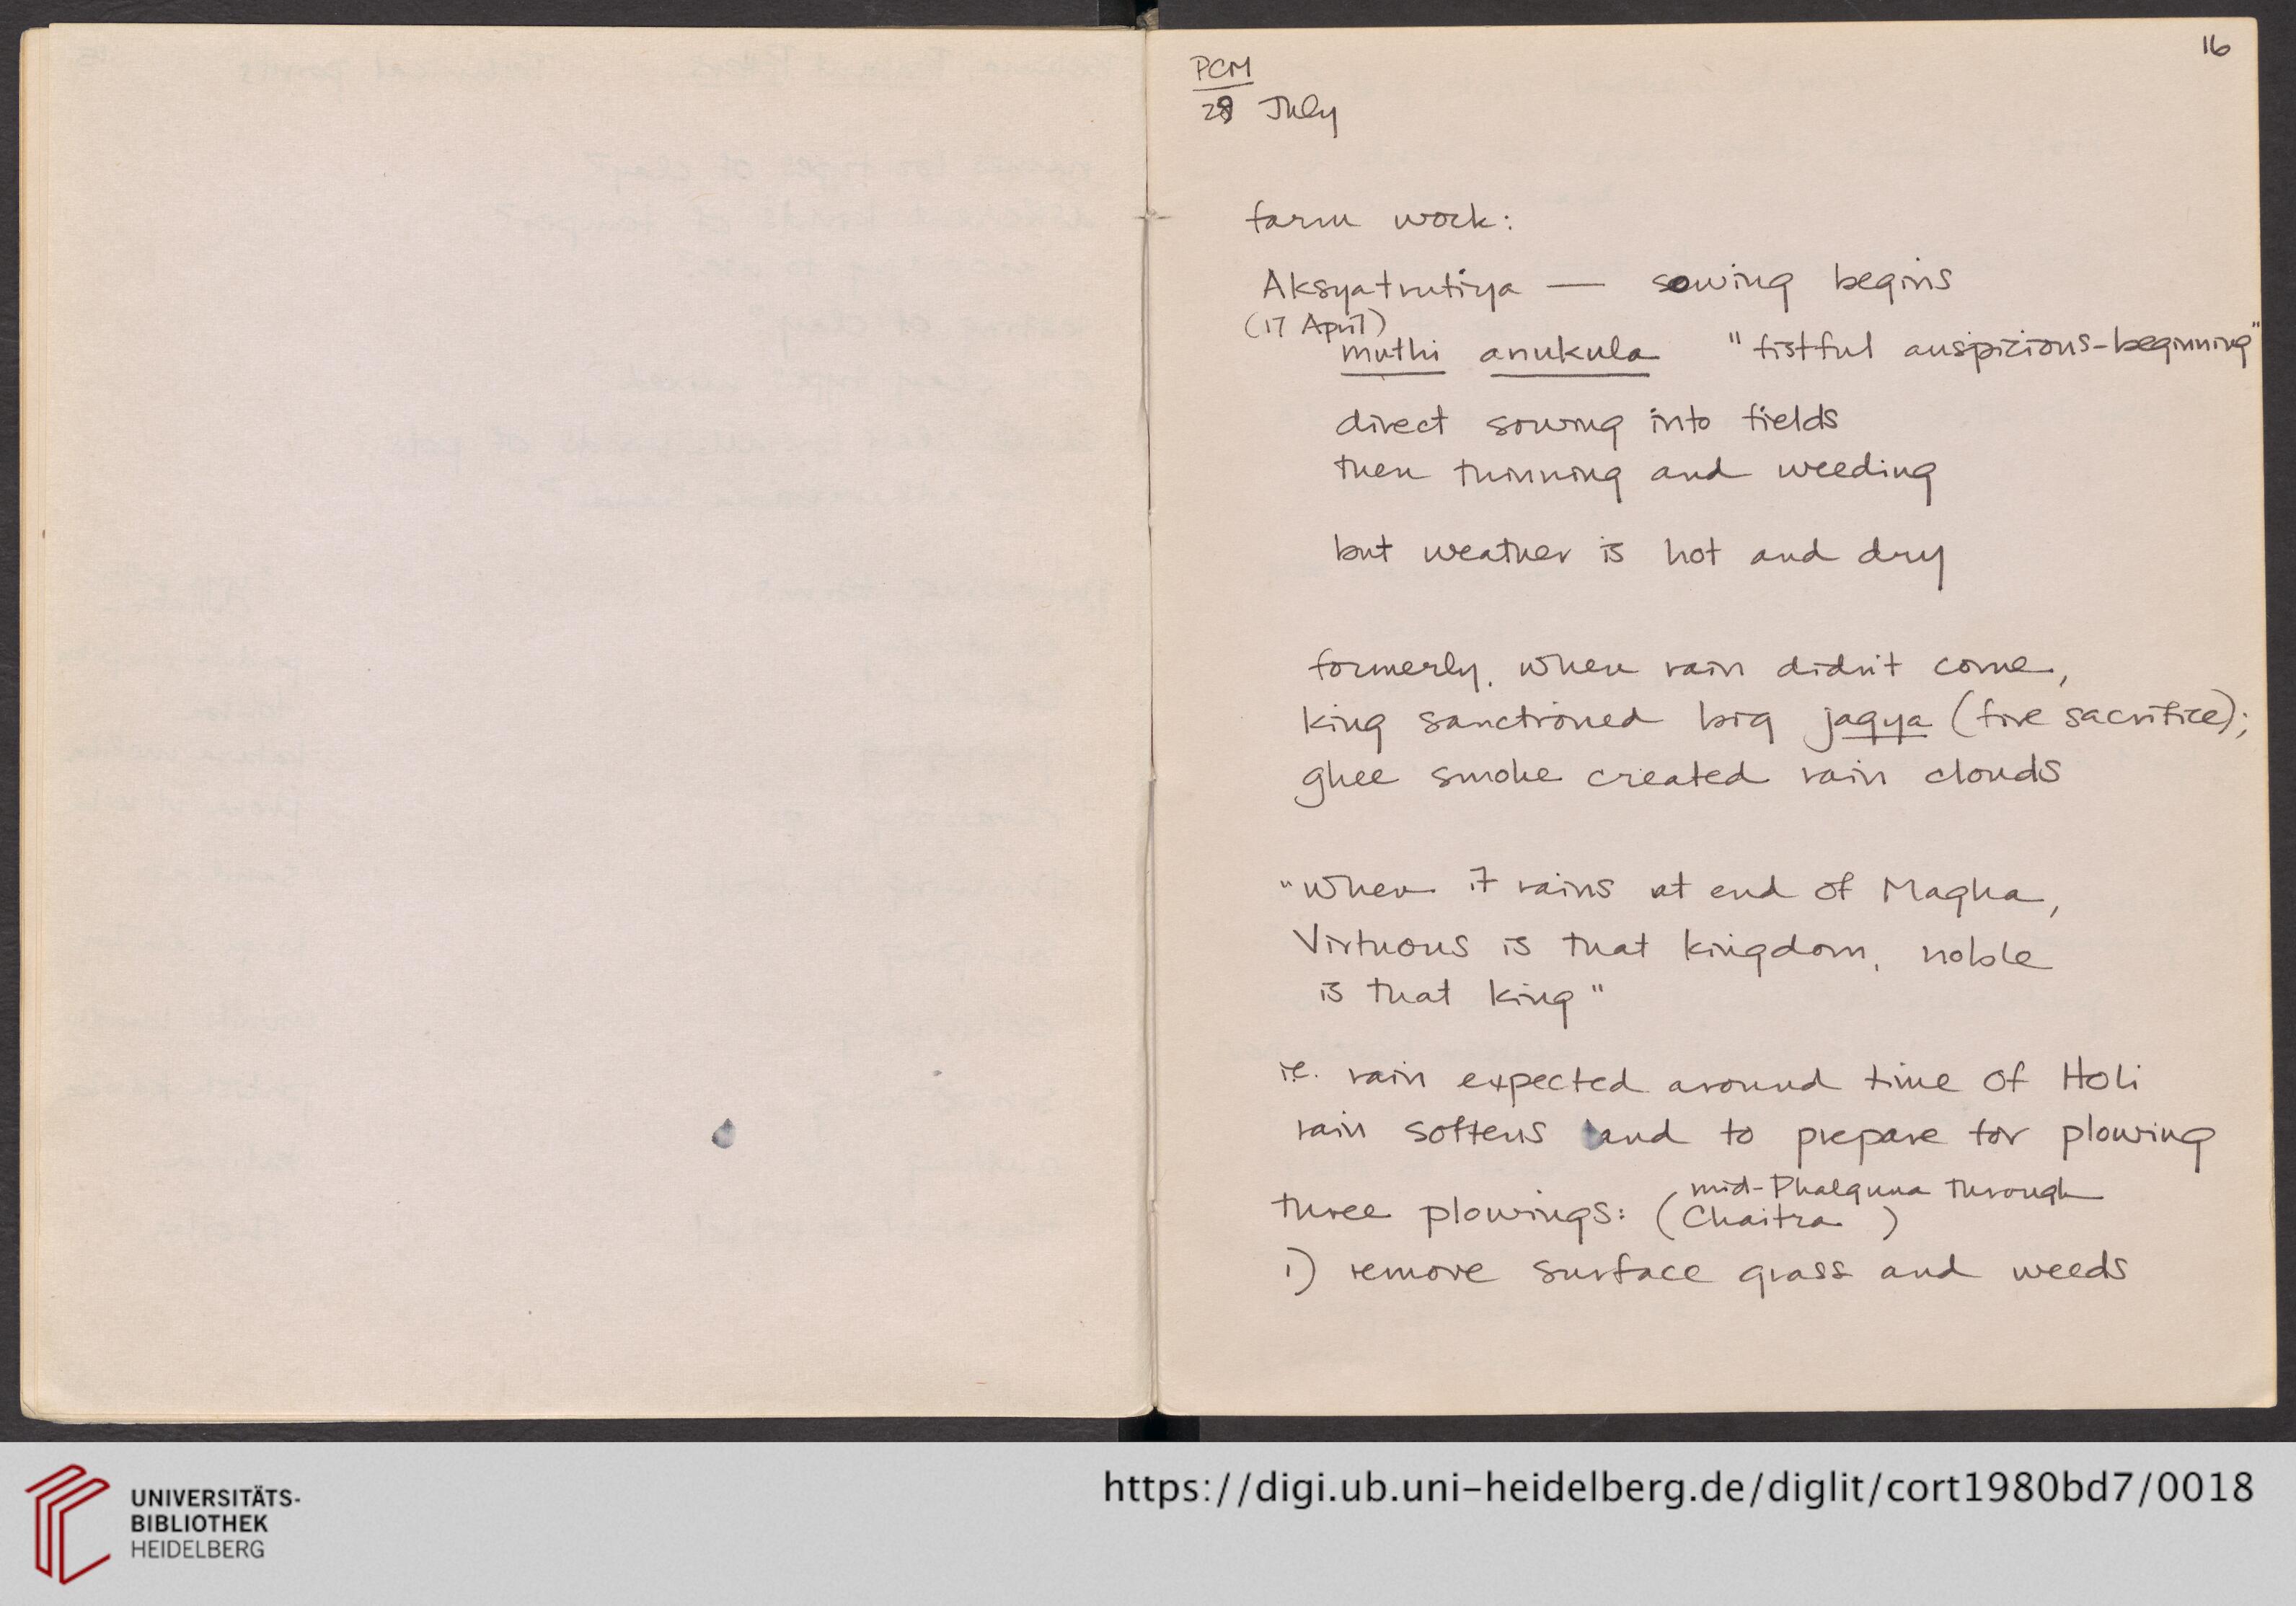 16
PCM
28 July
farm work:
Aksyatrutiya — sowing begins
(17 April)
muthi anukula "fistful auspicious-beginning"
direct sowing into fields
then thinning and weeding
but weather is hot and dry
formerly, when rain didn't come,
king sanctioned big jagya (fire sacrifice);
ghee smoke created rain clouds
"When it rains at end of Magha,
Virtuous is that kingdom, noble
is that king"
i.e. rain expected around time of Holi
rain softens land to prepare for plowing
three plowings: (mid-Phalguna through
Chaitra)
1) remove surface grass and weeds
UNIVERSITÄTS-
BIBLIOTHEK
HEIDELBERG
https://digi.ub.uni-heidelberg.de/diglit/cort1980bd7/0018